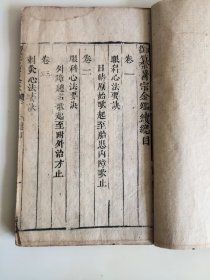 御纂醫宗金鑑續總目
卷一
眼科心法要訣
目睛原始歌起至胎患內障歌止
卷二
眼科心法要訣
外障總名歌起至附外治方止
卷三
刺灸心法要訣